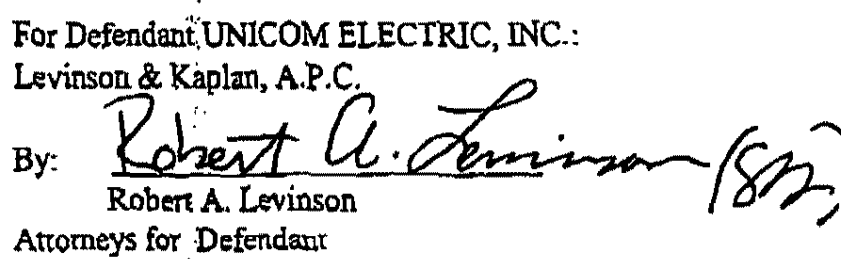 For Defendant UNICOM ELECTRIC, INC.:
Levinson & Kaplan, A.P.C.
By: Robert A. Levinson
Robert A. Levinson
Attorneys for Defendant